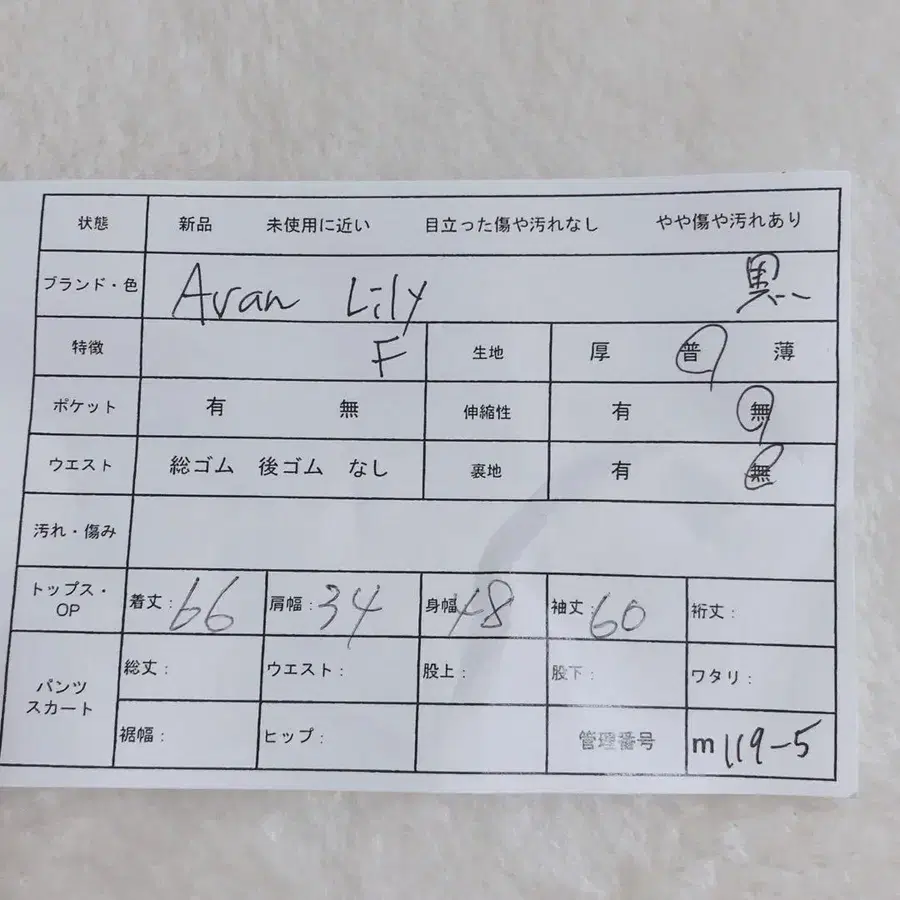 状態 新品 未使用に近い 目立った傷や汚れなし やや傷や汚れあり
ブランド・色 Avan Lily 黒
特徴 F 生地 厚 普 薄
ポケット 有 無 伸縮性 有 無
ウエスト 総ゴム 後ゴム なし 裏地 有 無
汚れ・傷み
トップス・OP 着丈: 66 肩幅: 34 身幅 48 袖丈: 60 裄丈:
パンツ スカート 総丈: ウエスト: 股上: 股下: ワタリ:
裾幅: ヒップ: 管理番号 m119-5